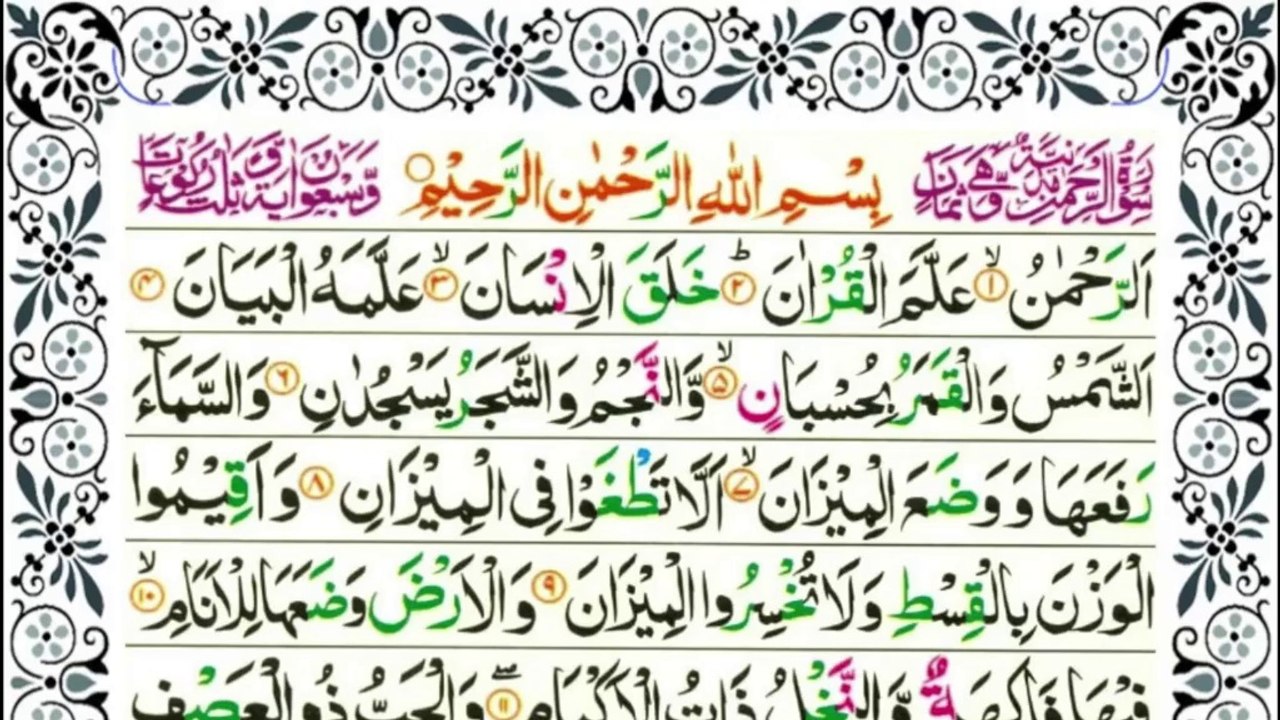 سُوْرَةُ الرَّحْمٰنِ مَدَنِيَّةٌ وَّهِيَ ثَمَانٌ بِسْمِ اللّٰهِ الرَّحْمٰنِ الرَّحِيْمِ وَّسَبْعُوْنَ اٰيَةً وَّثَلٰثُ رُكُوْعَاتٍ
اَلرَّحْمٰنُ ۙ﴿۱﴾ عَلَّمَ الْقُرْاٰنَ ؕ﴿۲﴾ خَلَقَ الْاِنْسَانَ ۙ﴿۳﴾ عَلَّمَهُ الْبَيَانَ ﴿۴﴾
اَلشَّمْسُ وَالْقَمَرُ بِحُسْبَانٍ ۙ﴿۵﴾ وَّالنَّجْمُ وَالشَّجَرُ يَسْجُدٰنِ ﴿۶﴾ وَالسَّمَآءَ
رَفَعَهَا وَوَضَعَ الْمِيْزَانَ ۙ﴿۷﴾ اَلَّا تَطْغَوْا فِى الْمِيْزَانِ ﴿۸﴾ وَاَقِيْمُوا
الْوَزْنَ بِالْقِسْطِ وَلَا تُخْسِرُوا الْمِيْزَانَ ﴿۹﴾ وَالْاَرْضَ وَضَعَهَا لِلْاَنَامِ ۙ﴿۱۰﴾
فِيْهَا فَاكِهَةٌ وَّالنَّخْلُ ذَاتُ الْاَكْمَامِ ۖ﴿۱۱﴾ وَالْحَبُّ ذُو الْعَصْفِ